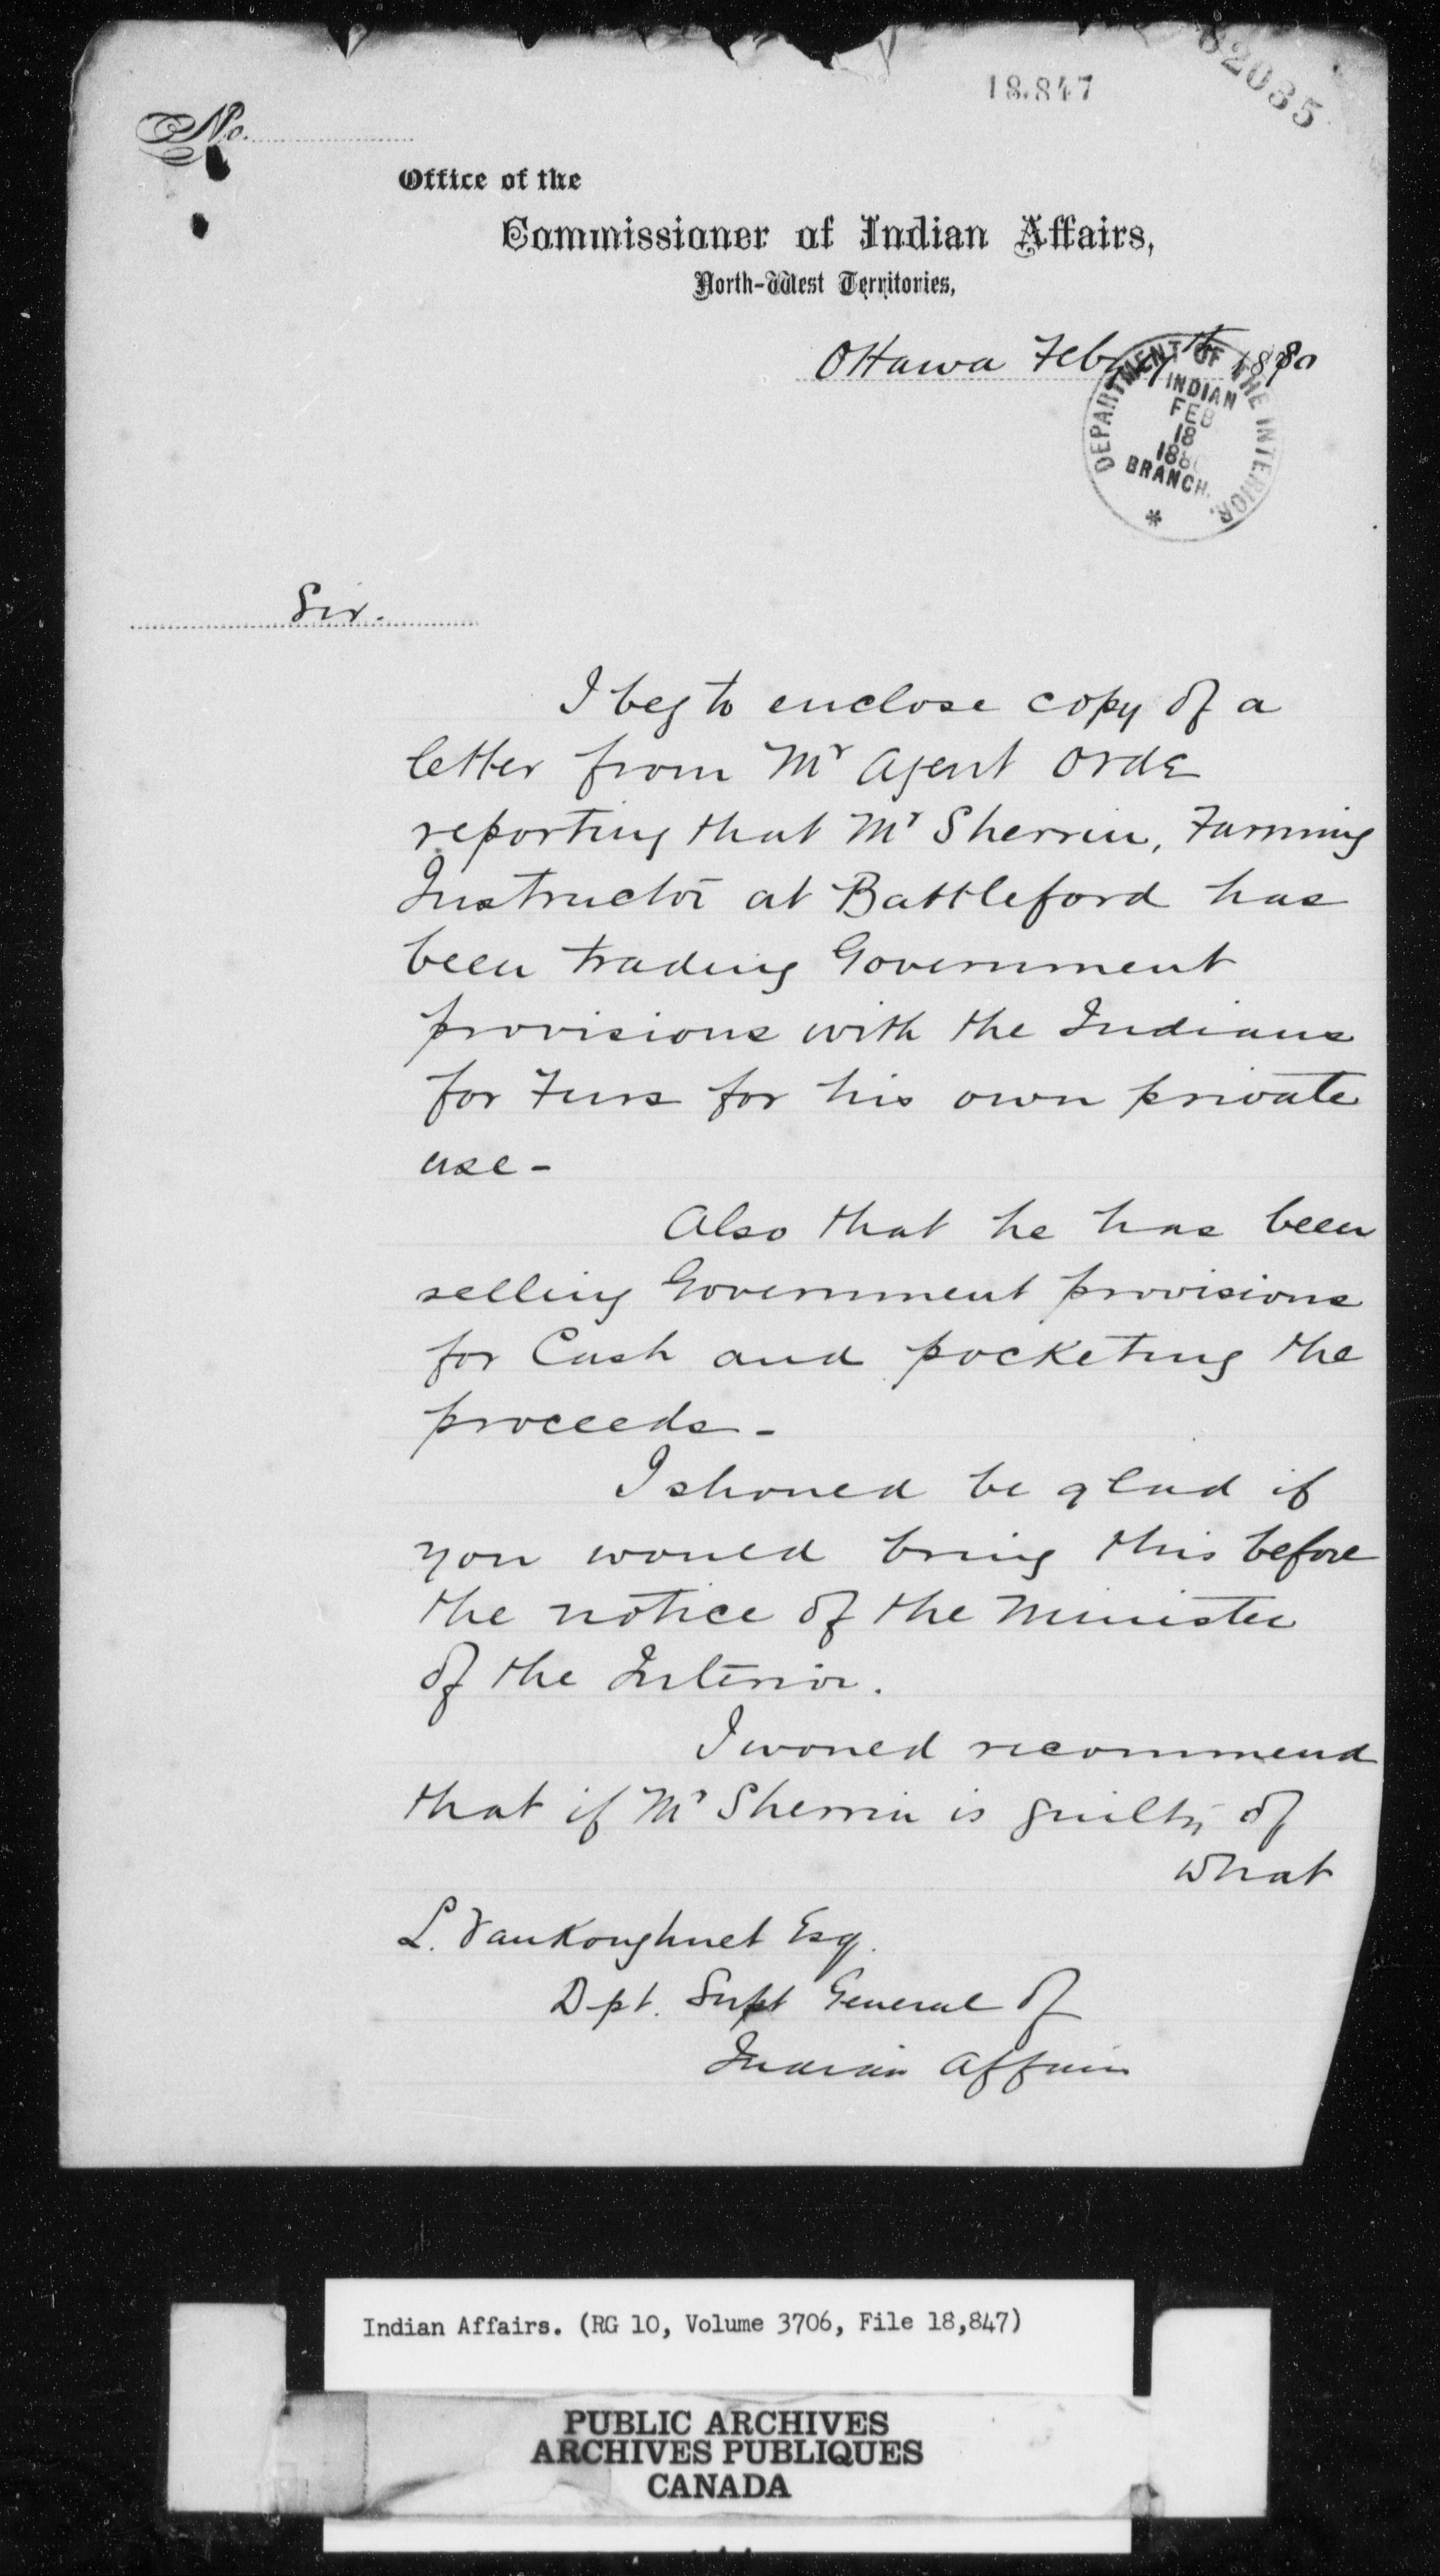 18.847
62035
No.
Office of the
Commissioner of Indian Affairs,
North-West Territories,
Ottawa Feb 1880
DEPARTMENT OF THE INTERIOR.
INDIAN
FEB
18
1880
BRANCH.
Sir.
I beg to enclose copy of a
letter from Mr Agent Orde
reporting that Mr Sherrin, Farming
Instructor at Battleford has
been trading Government
provisions with the Indians
for Furs for his own private
use -
Also that he has been
selling Government provisions
for Cash and pocketing the
proceeds -
I should be glad if
you would bring this before
the notice of the Minister
of the Interior.
I would recommend
that if Mr Sherrin is guilty of
what
L. VanKoughnet Esq.
Dpt. Supt General of
Indian Affairs
Indian Affairs. (RG 10, Volume 3706, File 18,847)
PUBLIC ARCHIVES
ARCHIVES PUBLIQUES
CANADA